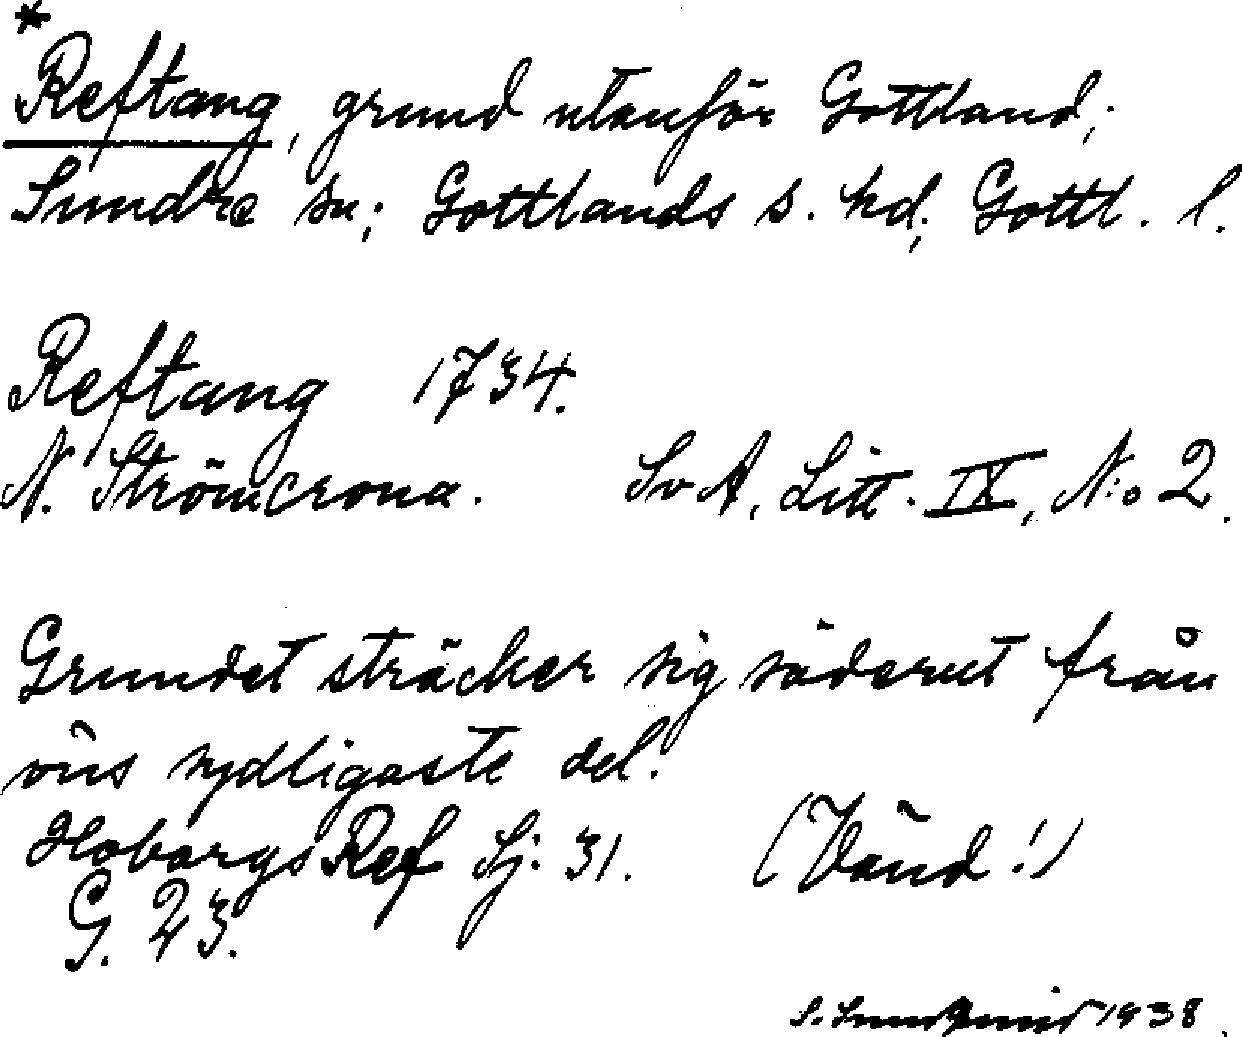 *
Reftang, grund utanför Gottland;
Sundre sn; Gottlands s. hd; Gottl. l.
Reftang 1734.
N. Strömcrona. SvA, Litt. IX, N:o 2.
Grundet sträcker sig söderut från
öns sydligaste del.
Hoborgs Ref Sj. 31. (Vänd!)
G. 23.
S. 1938